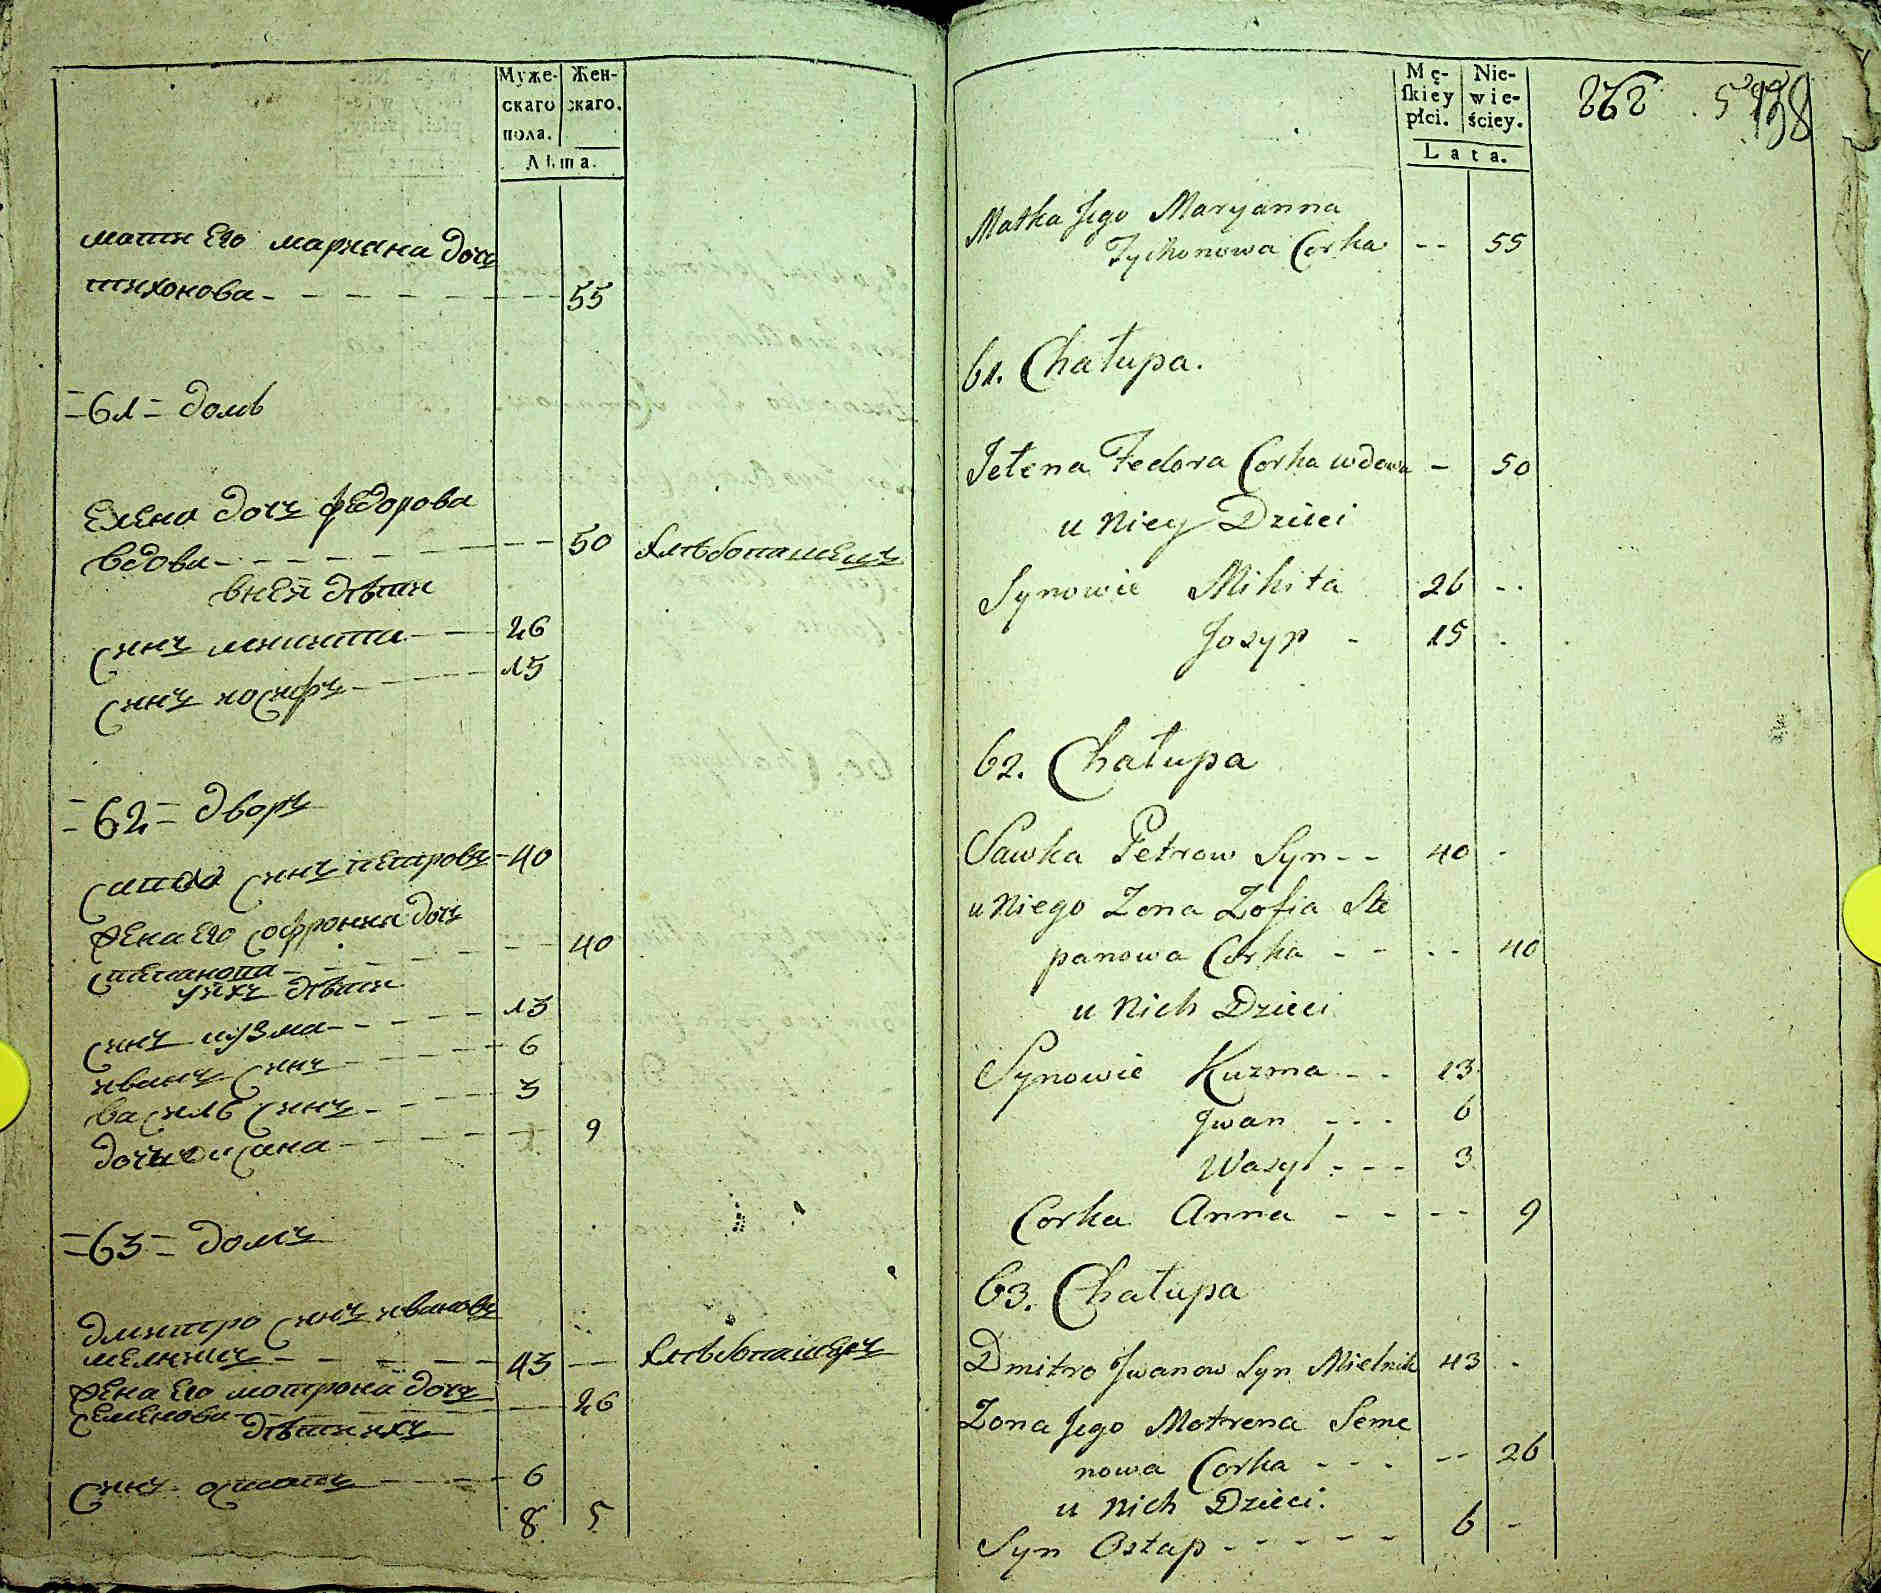 Муже-
скаго
пола.
Жен-
скаго.
Лѣта.
мати его марияна дочь
тихонова - - - - - - 55
=61= домъ
елена дочь федорова
вдова - - - - - - 50 хлѣбопашець
в ней дѣти
синъ микита - - 26
синъ иосифъ - - - - 15
=62= дворъ
синъ петровъ - 40
жена его софрония дочь
степанова - - - - - - 40
у них дѣти
синъ кузма - - - - - 13
иванъ синъ - - - - - 6
василь синъ - - - - 3
дочь - - - - - 9
=63= домъ
дмитро синъ ивановъ
мелникъ - - - - - - 43 - - хлѣбопашець
жена его мотрона дочь
семенова - - - - - - 26
дѣти ихъ
синъ остапъ - - - - - 6
8 5
Mę-
skiey
płci.
Nie-
wie-
ściey.
Lata.
262
138
Matka Jego Maryanna
Tychonowa Corka - - 55
61. Chałupa.
Jełena Fedora Corka wdowa - 50
u Niey Dzieci
Synowie Mikita 26 - -
Josyp - 15 -
62. Chałupa
Sawka Petrow Syn - - 40 -
u Niego Zona Zofia Ste
panowa Corka - - - - 40
u Nich Dzieci
Synowie Kuzma - - 13
Jwan - - - 6
Wasyl - - - 3
Corka Anna - - - - 9
63. Chałupa
Dmitro Jwanow Syn Mielnik 43 -
Zona Jego Motrena Seme
nowa Corka - - - - - 26
u Nich Dzieci.
Syn Ostap - - - - - 6 -